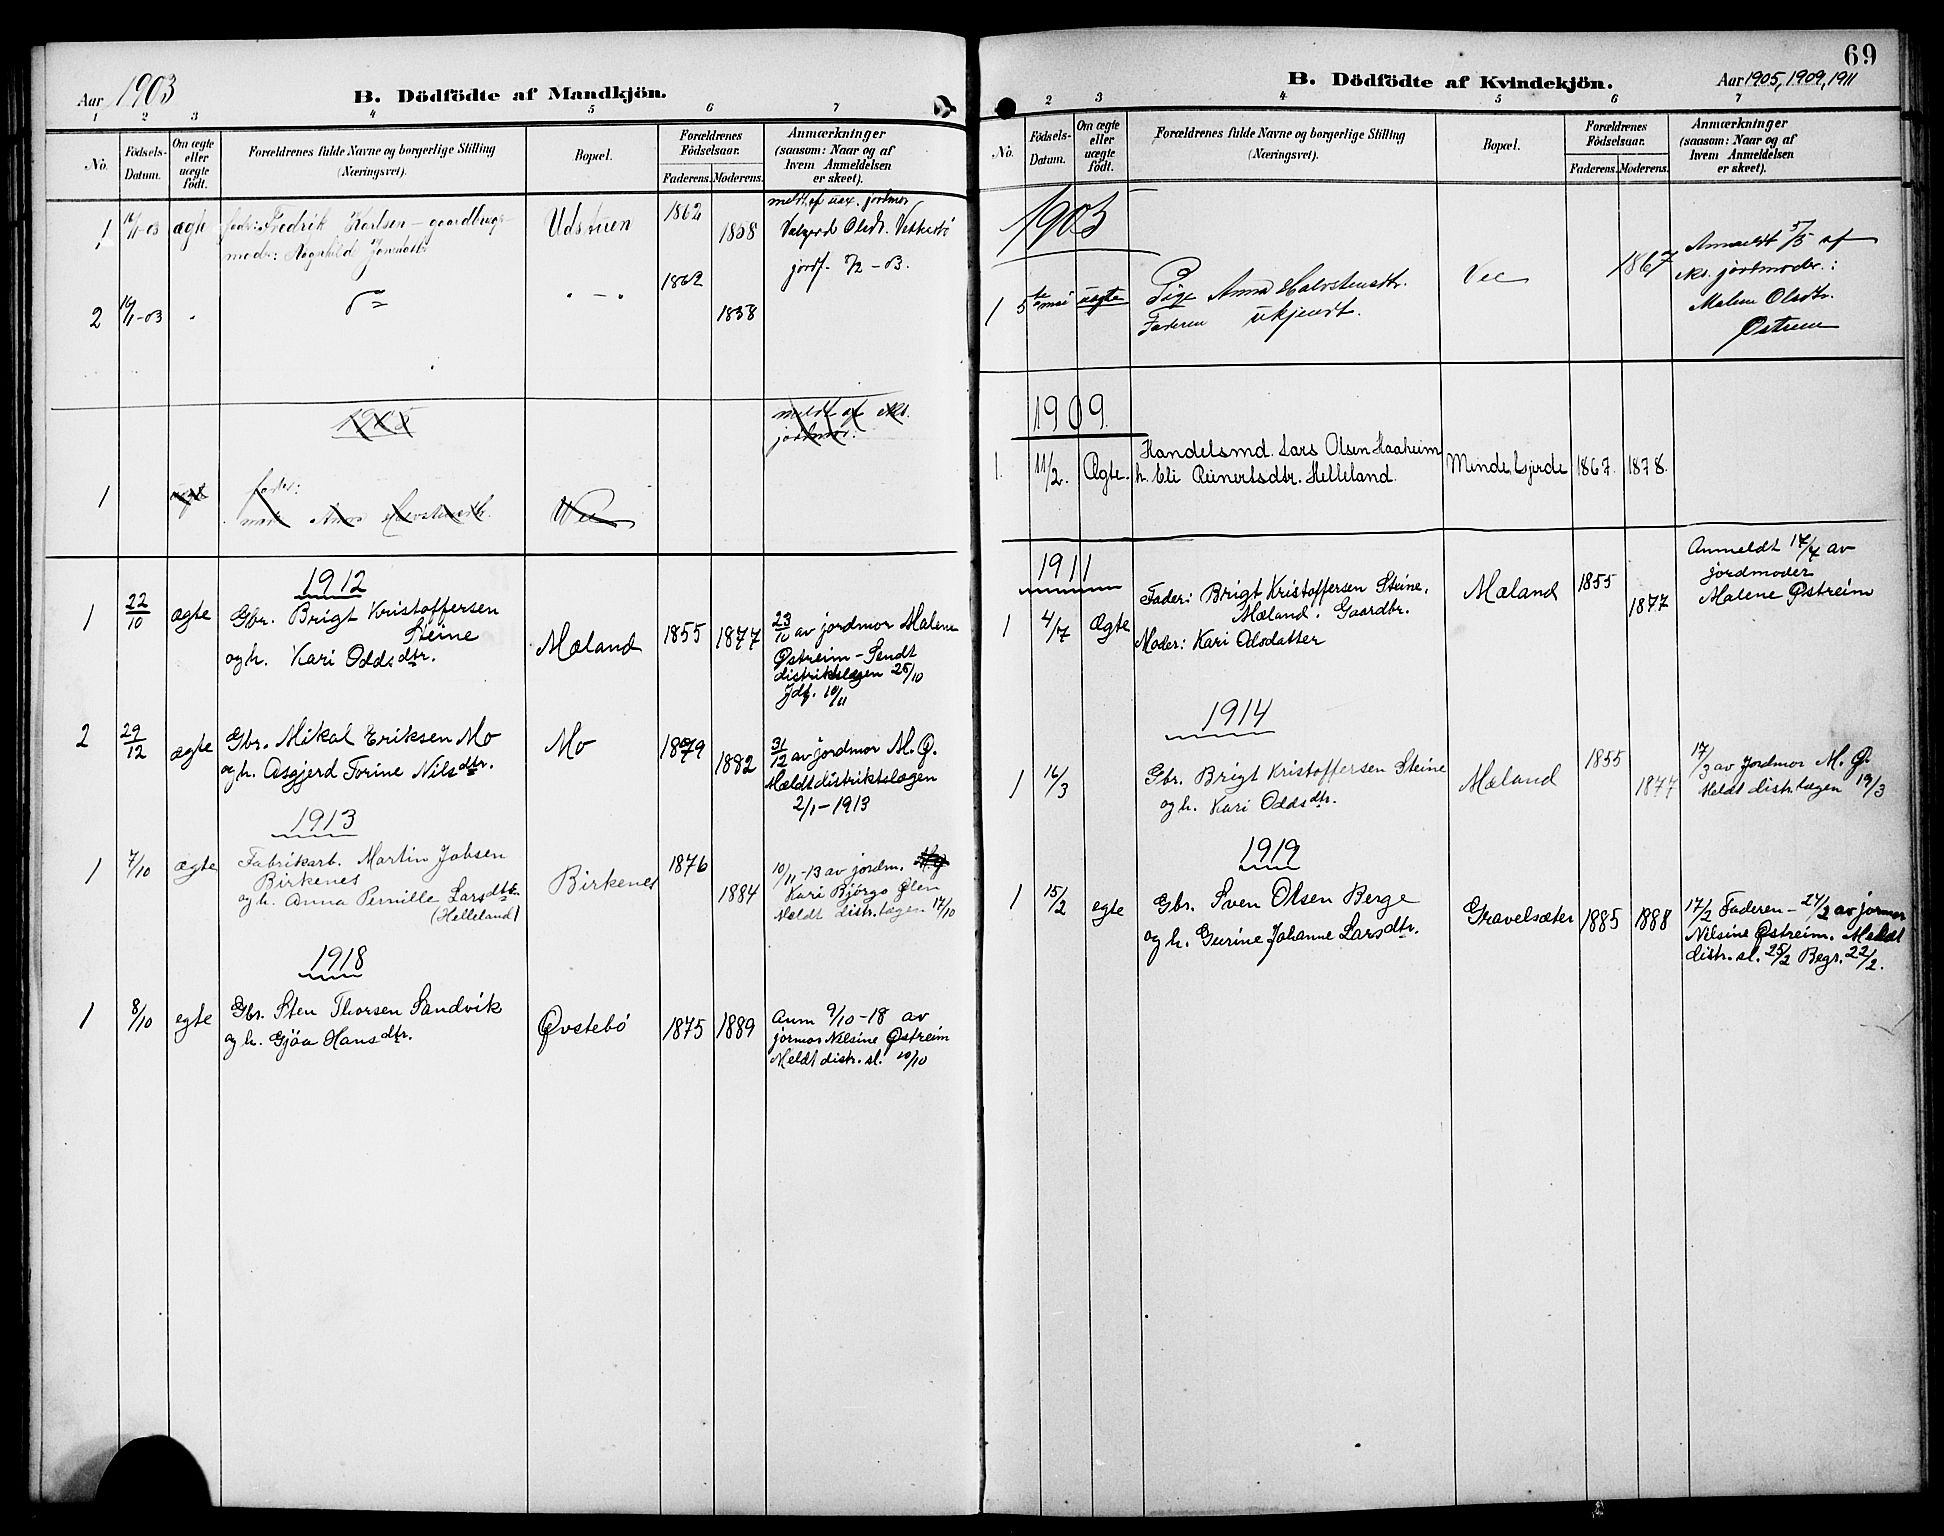 Aar 1903
B. Dödfödte af Mandkjön.
1 2 3 4 5 6 7
No.
Födsels-Datum.
Om ægte eller uægte født.
Forældrenes fulde Navne og borgerlige Stilling
(Næringsvei).
Bopæl.
Forældrenes Födselsaar.
Faderens. Moderens.
Anmærkninger
(saasom: Naar og af
hvem Anmeldelsen
er skeet).
1 16/1-03 ægte fadr: Fredrik Karlsen - gaardbrugr Udstuen 1862 1858
modr: Ragnhilde
meldt af jordmor
Valgerd Olsdt. Vestrebö
jordf. 7/2-03.
2 16/1-03 " do " - " 1862 1858
1905
meldt af eks.
jordmor:
1 ægte fader:
mor Anna Halvstensdtr. Vee
1912
1 22/10 ægte Gbr. Brigt Kristoffersen
Steine
og h. Kari Oddsdtr.
Mæland 1855 1877
23/10 av jordmor Malene
Østreim - Sendt
distriktslægen 25/10
Jdf. 10/11
2 29/12 ægte Gbr. Mikal Eriksen Mo
og h. Asgjerd Torine Nilsdtr.
Mo 1879 1882
31/12 av jordmor M. Ø.
Mældt distriktslægen
2/1-1913
1913
1 7/10 ægte Fabrikarb. Martin Jobsen
Birkenes
og h. Anna Pernille Larsdtr.
(Helleland)
Birkenes 1876 1884
10/11-13 av jordm.
Kari Bjørgo Ølen
Meldt distr.lægen 17/10
1918
1 8/10 egte Gbr. Sten Thorsen Sandvik
og h. Gjöa Hansdtr.
Øvstebö 1875 1889
Anm 9/10-18 av
jormor Nilsine Østreim
Meldt distr. sl. 10/10
69
B. Dödfödte af Kvindekjön.
Aar 1905, 1909, 1911
2 3 4 5 6 7
No.
Födsels-Datum.
Om ægte eller uægte födt.
Forældrenes fulde Navne og borgerlige Stilling
(Næringsvei).
Bopæl.
Forældrenes Födselsaar.
Faderens. Moderens.
Anmærkninger
(saasom: Naar og af
hvem Anmeldelsen
er skeet).
1905
1 5te mai uægte Pige Anna Halvstensdtr.
Faderen ukjendt.
Vee 1867
Anmeldt 5/5 af
eks. jordmodr.:
Malene Olsdtr.
Østrem
1909.
1. 11/2. Ægte. Handelsmd. Lars Olsen Haaheim
h. Eli Reinertsdtr. Helleland.
Minde, Gjerde 1867. 1878.
1911
1 4/7 Ægte Fader: Brigt Kristoffersen Steine,
Mæland. Gaardbr.
Moder: Kari Olsdatter
Mæland 1855 1877
Anmeldt 17/7 av
jordmoder
Malene Østreim
1914
1 16/3 Gbr. Brigt Kristoffersen Steine
og h. Kari Oddsdtr.
Mæland 1855 1877
17/3 av Jordmor M. Ø.
Meldt distr. lægen 19/3
1919
1 15/2 egte Gbr. Sven Olsen Berge
og h. Gurine Johanne Larsdtr.
Gravelsæter 1885 1888
17/2 Faderen - 24/2 av jormor
Nilsine Østreim. Meldt
distr. sl. 25/2 Begr. 22/2.